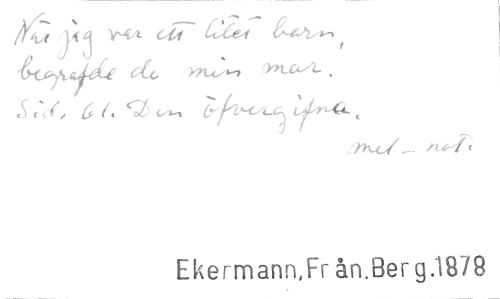 När jag var ett litet barn,
begrafde de min mor.
Sid. 61. Den öfvergifna.
mel-not.
Ekermann,Från.Berg.1878